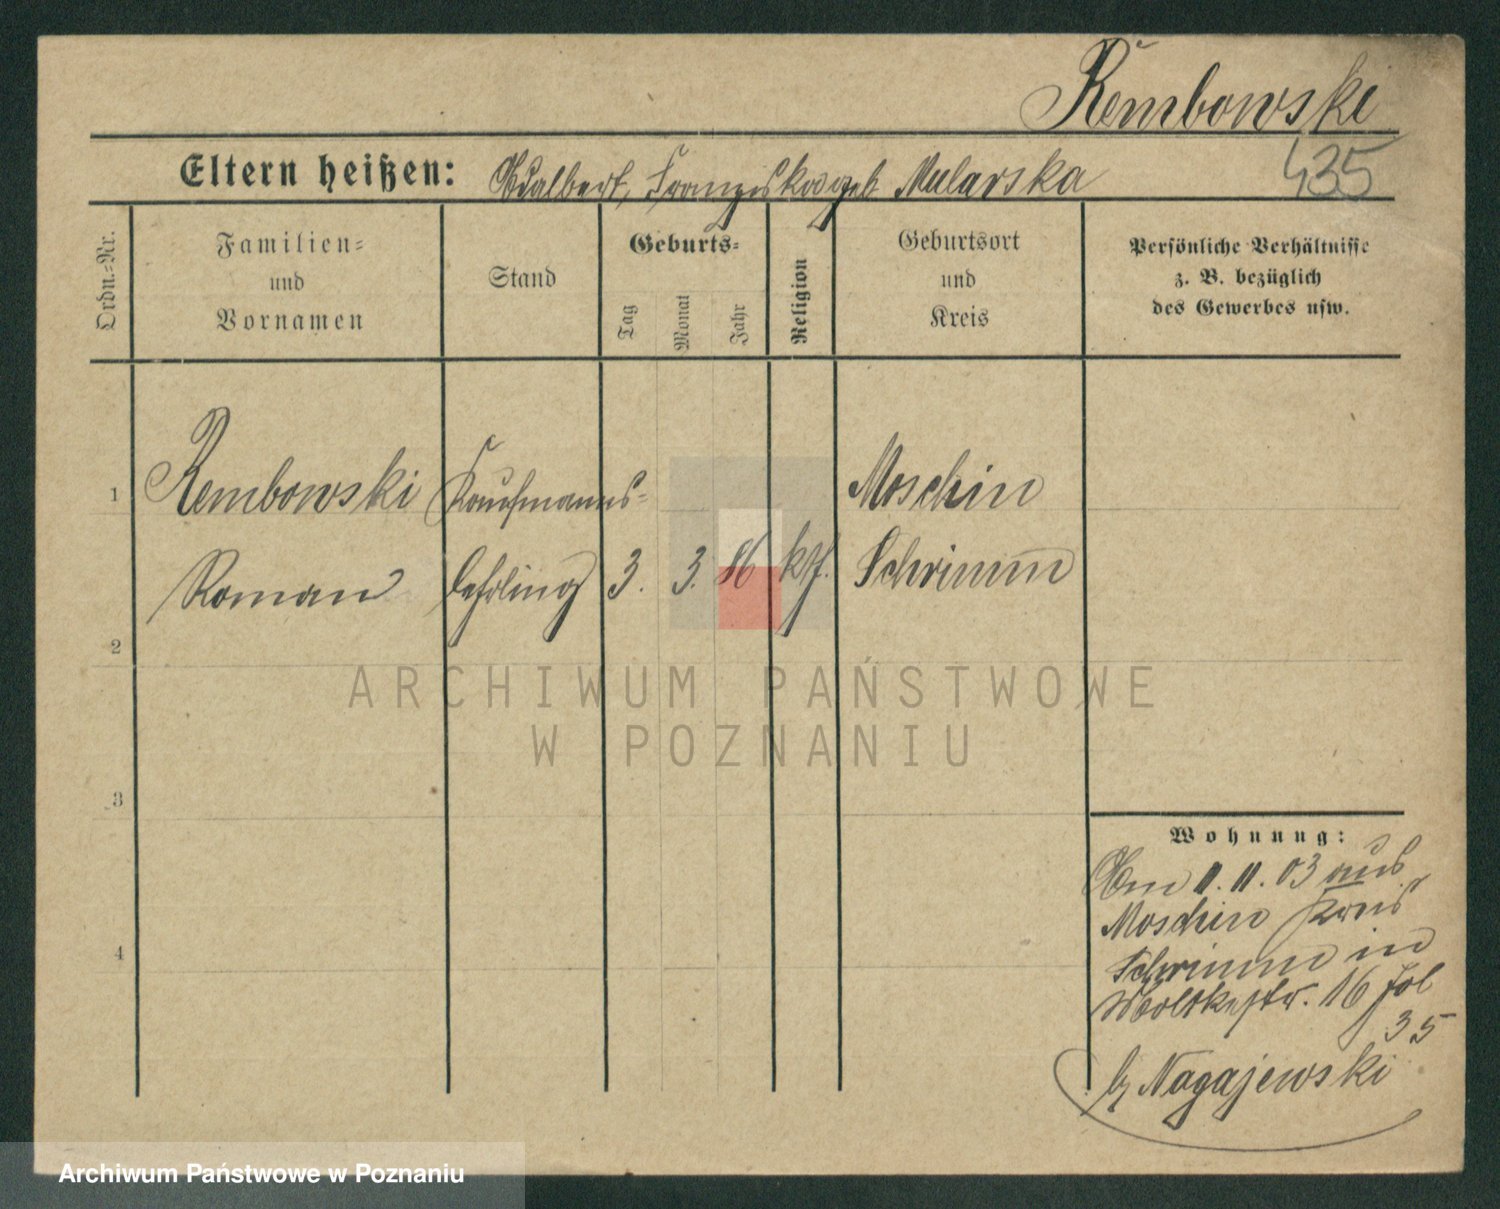 Rembowski
Eltern heißen: Adalbert, Franziska geb. Mularska
435
Ordn.-Nr.
Familien-
und
Vornamen
Stand
Geburts-
Tag
Monat
Jahr
Religion
Geburtsort
und
Kreis
Persönliche Verhältnisse
z. B. bezüglich
des Gewerbes usw.
1 Rembowski Kaufmanns- Moschin
Roman lehrling 3. 3. 86 kth. Schrimm
2
ARCHIWUM PAŃSTWOWE
W POZNANIU
3
4
Wohnung:
Am 1. 11. 03 aus
Moschin Kreis
Schrimm in
Moltkestr. 16 Fol
35
b/ Nagajewski
Archiwum Państwowe w Poznaniu